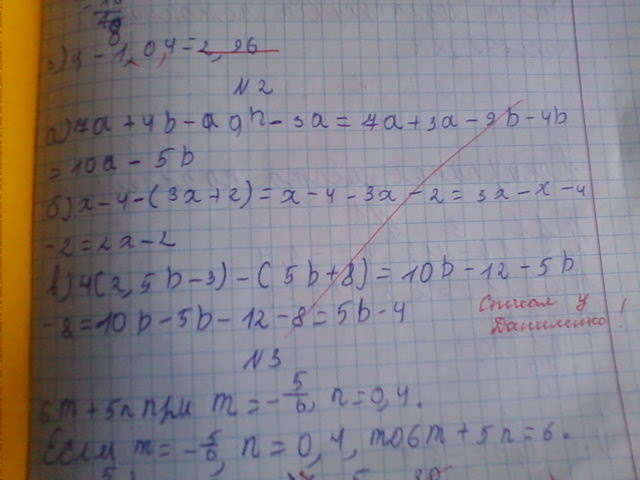 з) 4 - 1,0,4 = 2,96
N2
а) 7a + 4b - 9b - 3a = 7a + 3a - 9b - 4b
= 10a - 5b
б) x - 4 - (3x + 2) = x - 4 - 3x - 2 = 3x - x - 4
- 2 = 2x - 2
в) 4(2,5b - 3) - (5b + 8) = 10b - 12 - 5b
- 8 = 10b - 5b - 12 - 8 = 5b - 4
Списал у
Даниленко!
N3
6m + 5n при m = -5/6, n = 0,4.
Если m = -5/6, n = 0,4, то 6m + 5n = 6.